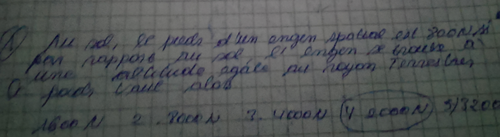 Au sol, le poids d'un engin spacial est 800N N
par rapport au sol le engin se trouve à
une altitude égale au rayon terrestre,
poids vaut alors
1600N 2. 8000N 3. 4000N 4 2000N 5) 3200